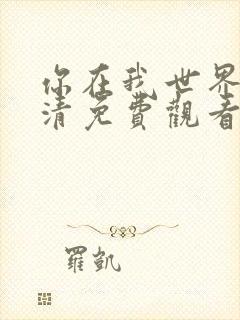 你在我世界
清免費觀看
羅凱